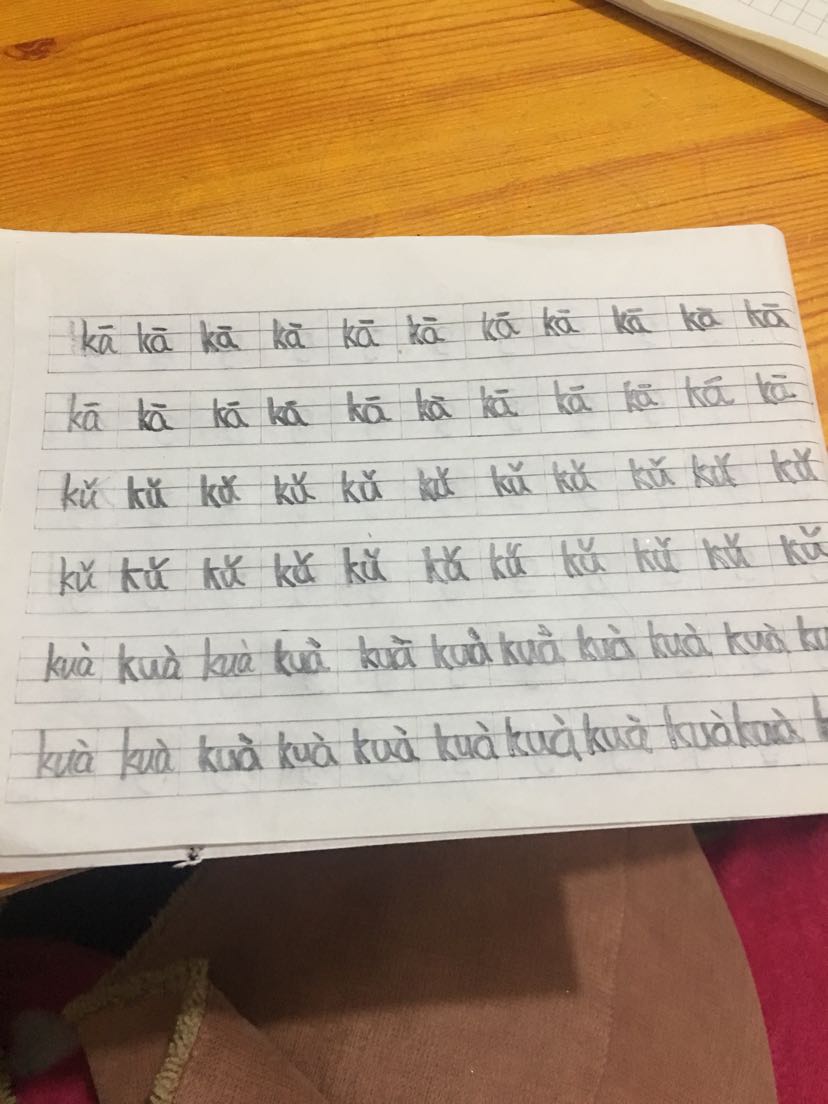 kā kā kā kā kā kā kā kā kā kā kā
kā kā kā kā kā kā kā kā kā kā kā
kǔ kǔ kǔ kǔ kǔ kǔ kǔ kǔ kǔ kǔ kǔ
kǔ kǔ kǔ kǔ kǔ kǔ kǔ kǔ kǔ kǔ kǔ
kuà kuà kuà kuà kuà kuà kuà kuà kuà kuà ku
kuà kuà kuà kuà kuà kuà kuà kuà kuà kuà